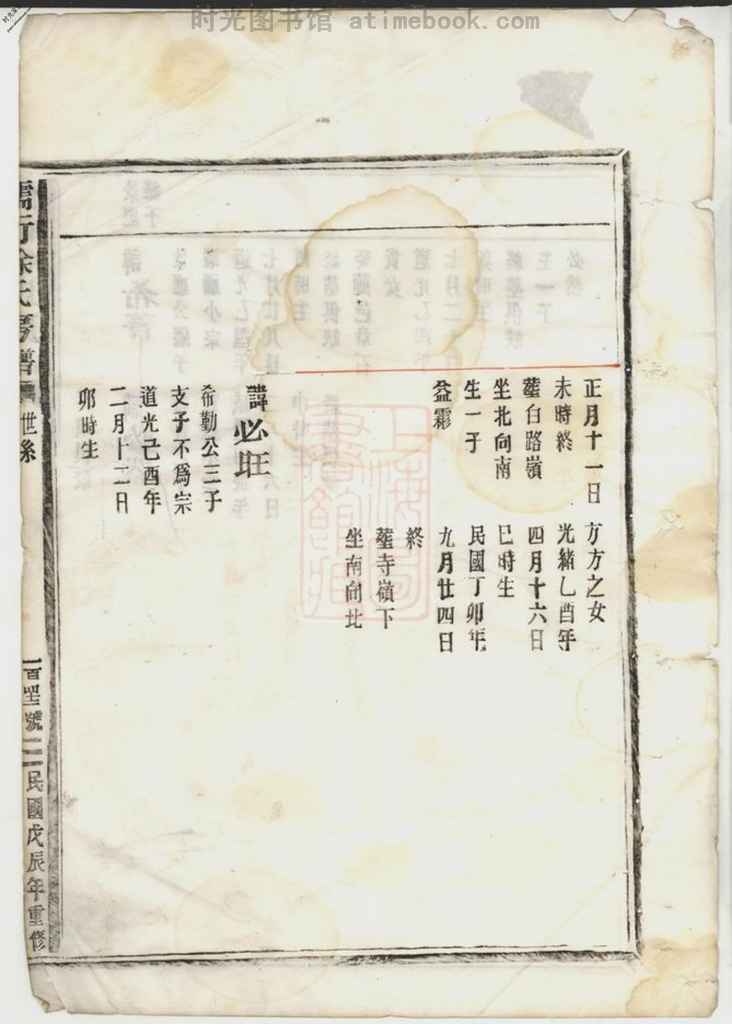 时光图书馆 atimebook.com
正月十一日
未時終
塟白路嶺
坐北向南
生一子
益霖
方方之女
光緒乙酉年
四月十六日
巳時生
民國丁卯年
九月廿四日
終
塟寺嶺下
坐南向北
諱必旺
希勤公三子
支子不爲宗
道光己酉年
二月十二日
卯時生
徐氏房譜
世系
民國戊辰年重修